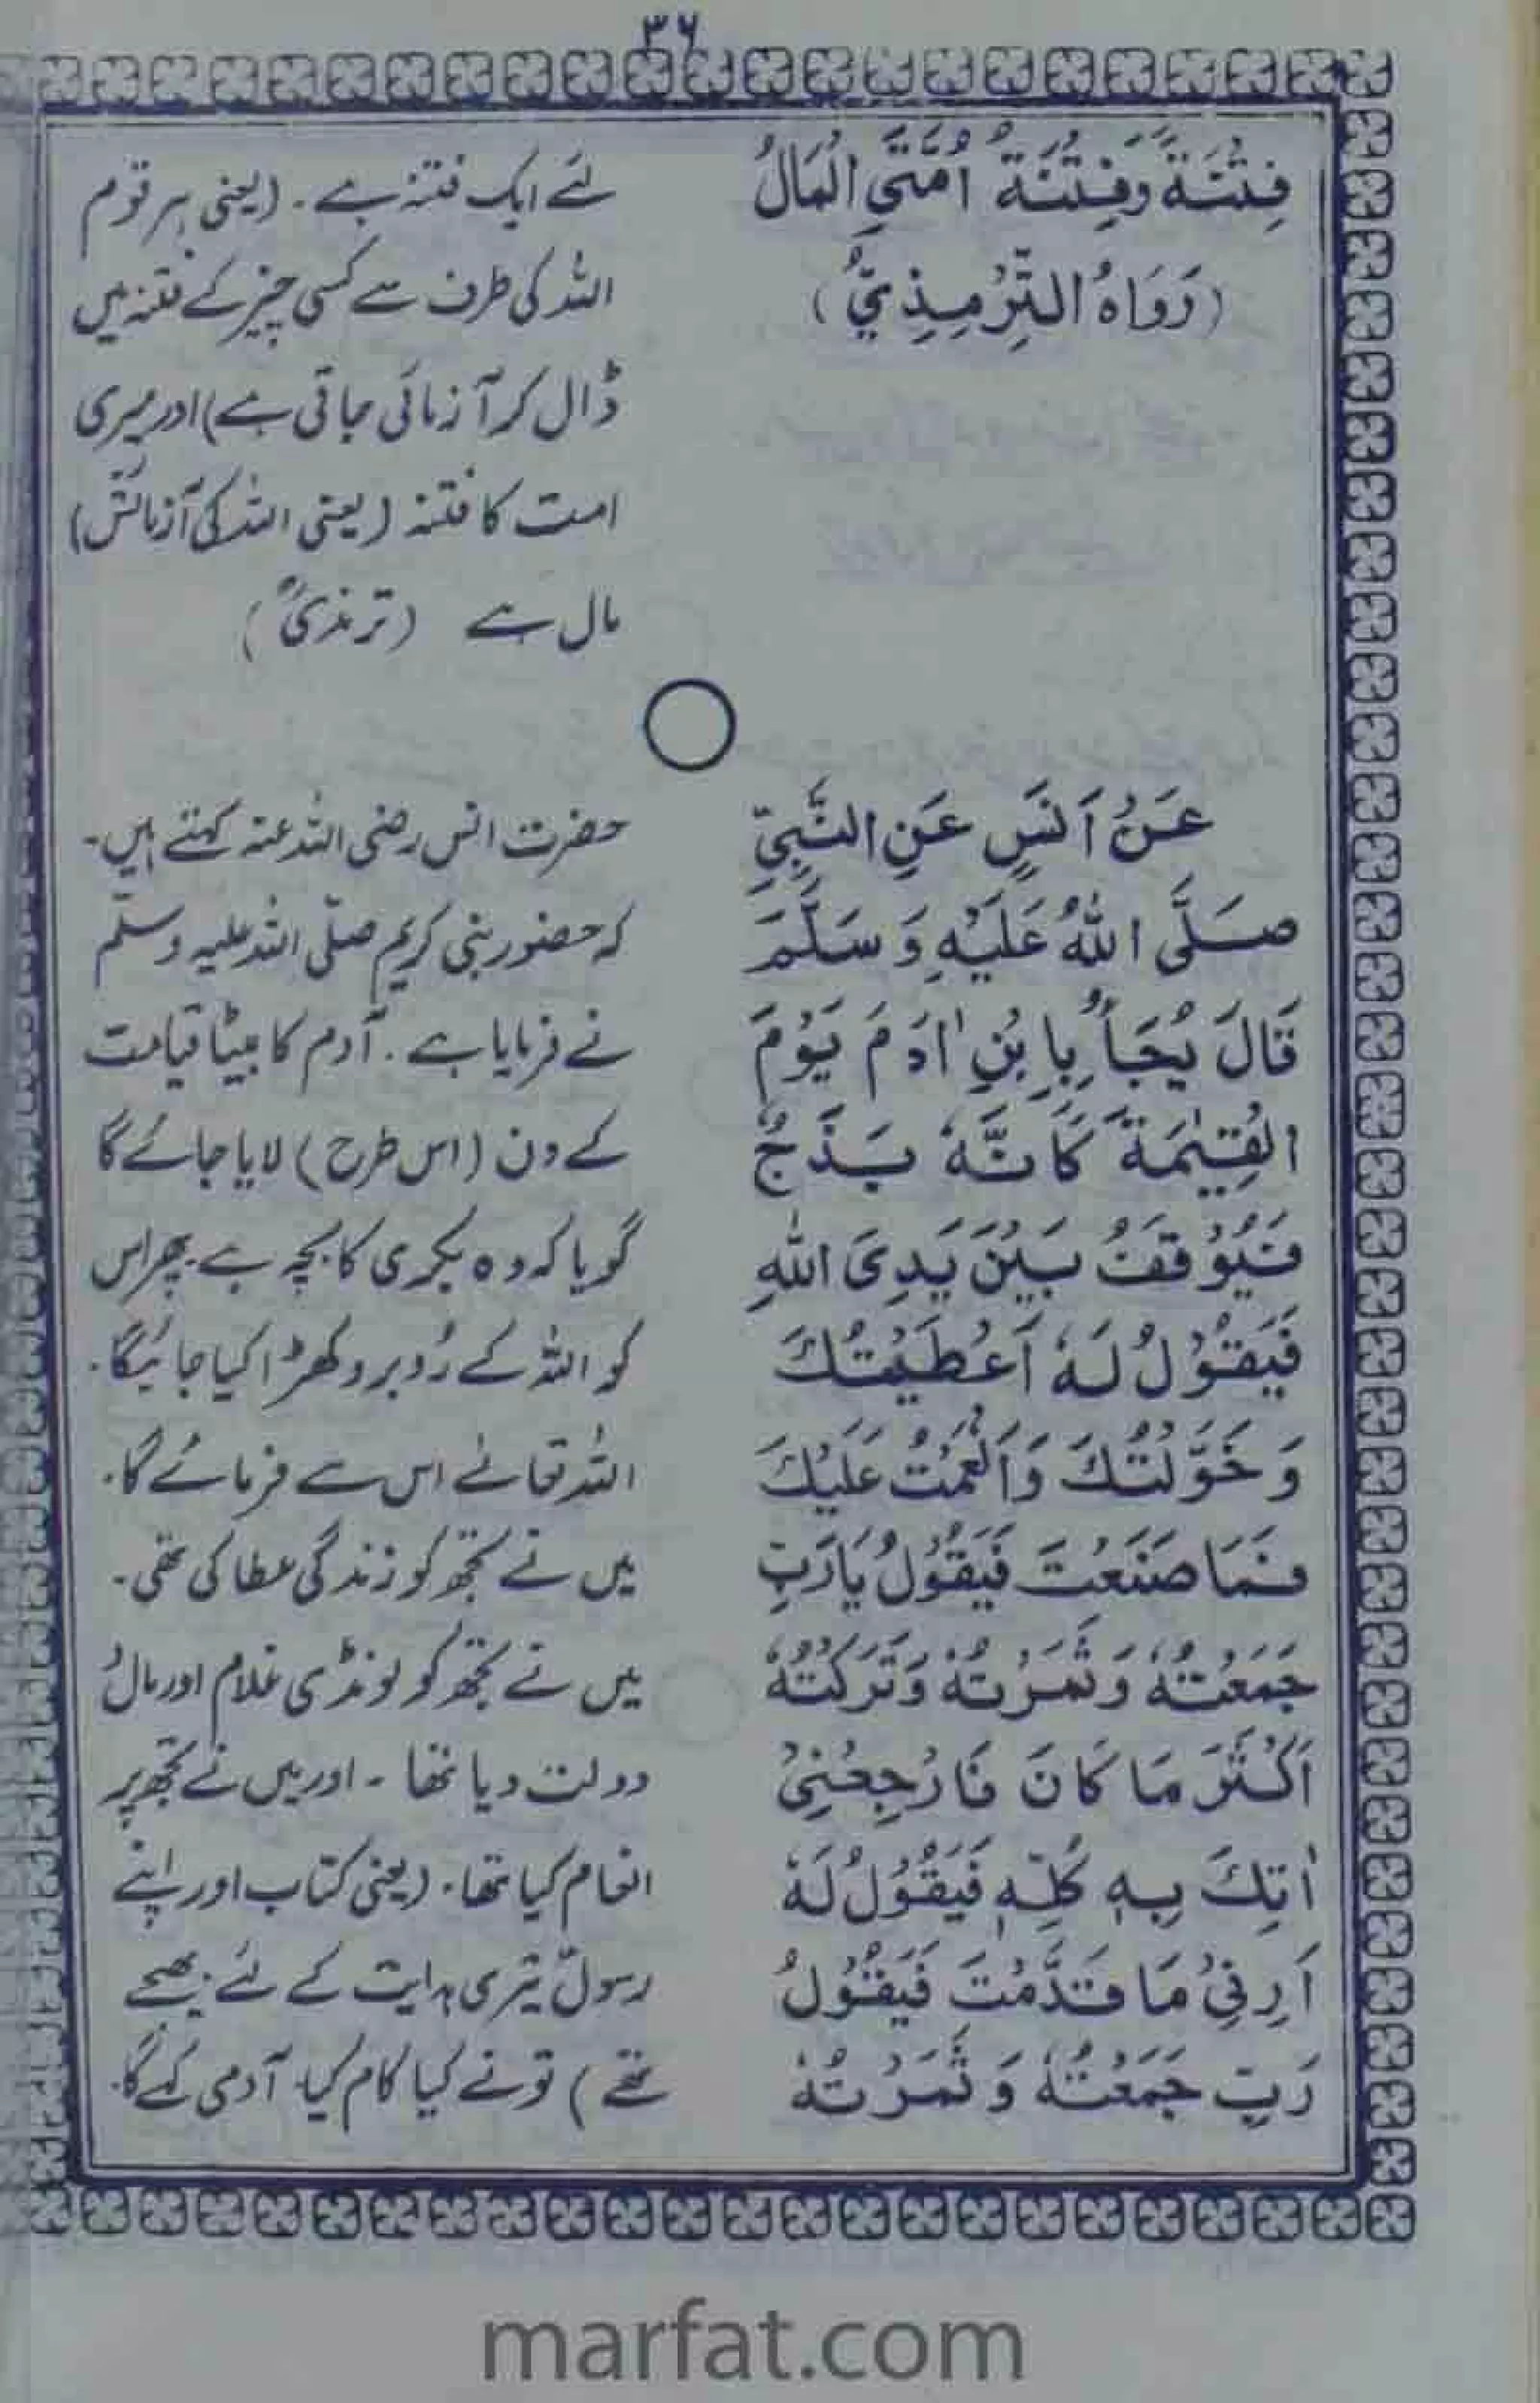 ۳۶
فِتْنَةً وَفِتْنَةُ اُمَّتِي الْمَالُ
(رَوَاهُ التِّرْمِذِيُّ)
عَنْ اَنَسٍ عَنِ النَّبِيِّ
صَلَّى اللّٰهُ عَلَيْهِ وَسَلَّمَ
قَالَ يُجَآءُ بِابْنِ اٰدَمَ يَوْمَ
الْقِيٰمَةِ كَاَنَّهٗ بَذَجٌ
فَيُوْقَفُ بَيْنَ يَدِىَ اللّٰهِ
فَيَقُوْلُ لَهٗ اَعْطَيْتُكَ
وَخَوَّلْتُكَ وَاَنْعَمْتُ عَلَيْكَ
فَمَا صَنَعْتَ فَيَقُوْلُ يَا رَبِّ
جَمَعْتُهٗ وَثَمَّرْتُهٗ وَتَرَكْتُهٗ
اَكْثَرَ مَا كَانَ فَارْجِعْنِىْ
اٰتِكَ بِهٖ كُلِّهٖ فَيَقُوْلُ لَهٗ
اَرِنِىْ مَا قَدَّمْتَ فَيَقُوْلُ
رَبِّ جَمَعْتُهٗ وَثَمَّرْتُهٗ
لئے ایک فتنہ ہے۔ (یعنی ہر قوم
اللہ کی طرف سے کسی چیز کے فتنہ میں
ڈال کر آزمائی جاتی ہے) اور میری
امت کا فتنہ (یعنی اللہ کی آزمائش)
مال ہے (ترمذیؒ)
حضرت انس رضی اللہ عنہ کہتے ہیں۔
کہ حضور نبی کریم صلّی اللہ علیہ وسلّم
نے فرمایا ہے۔ آدم کا بیٹا قیامت
کے دن (اس طرح) لایا جائے گا
گویا کہ وہ بکری کا بچہ ہے۔ پھر اس
کو اللہ کے رُوبرو کھڑا کیا جائیگا۔
اللہ تعالےٰ اس سے فرمائے گا۔
میں نے تجھ کو زندگی عطا کی تھی۔
میں نے تجھ کو لونڈی غلام اور مال
دولت دیا تھا۔ اور میں نے تجھ پر
انعام کیا تھا۔ (یعنی کتاب اور اپنے
رسولؐ تیری ہدایت کے لئے بھیجے
تھے) تو نے کیا کام کیا۔ آدمی کہے گا۔
marfat.com